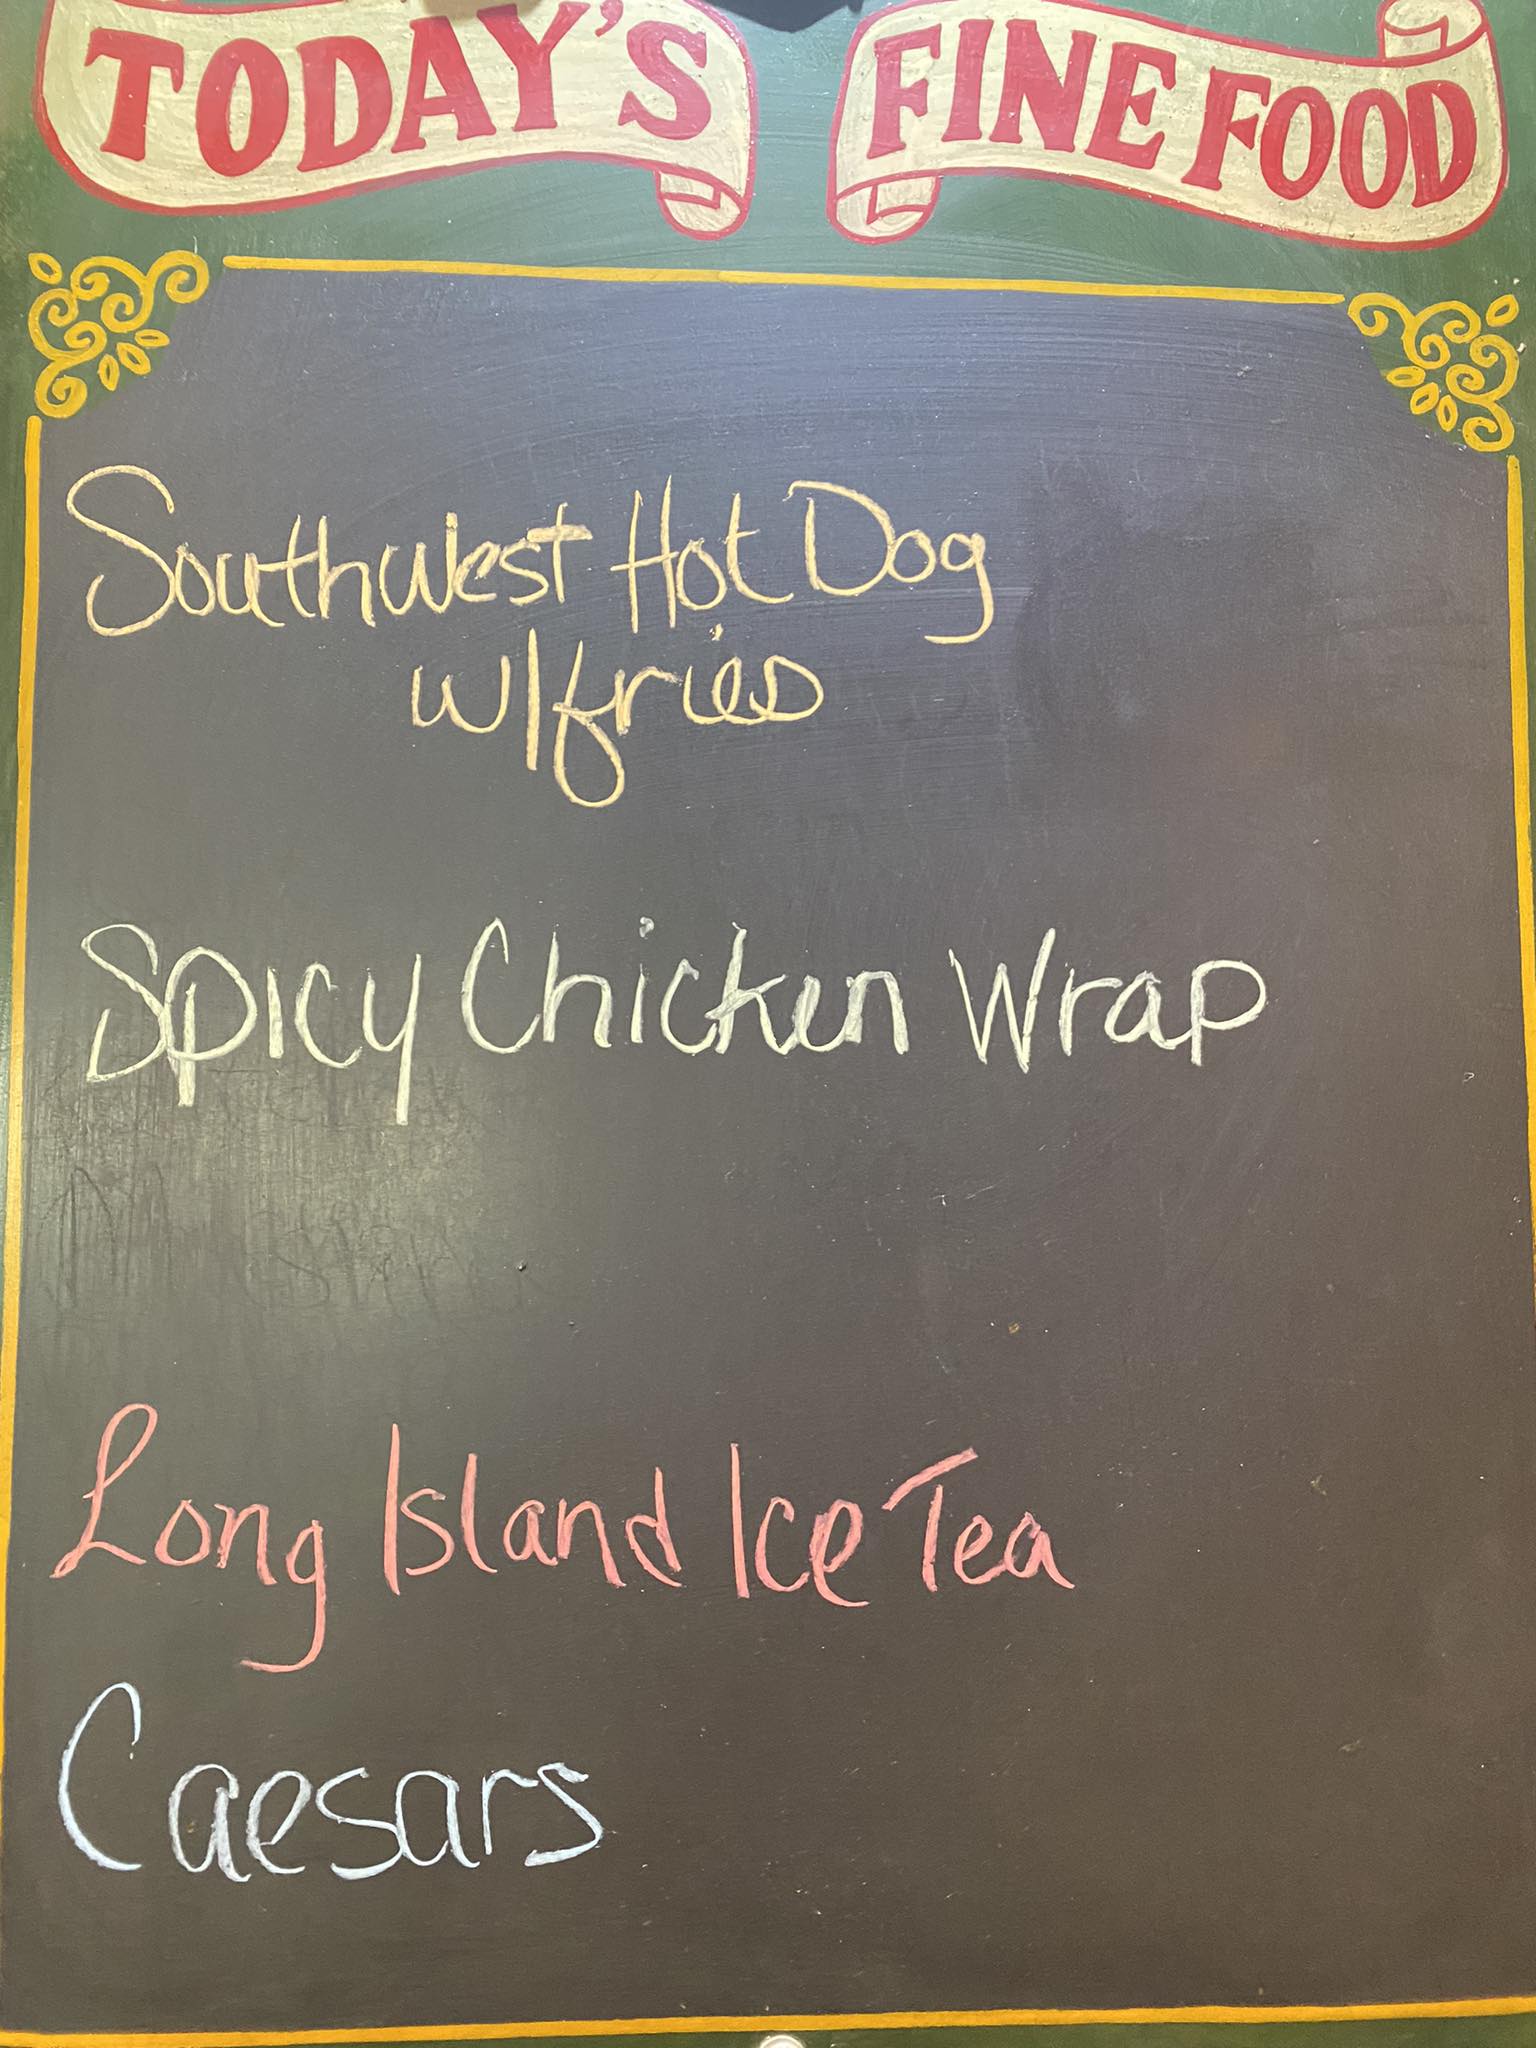 TODAY'S FINE FOOD
Southwest Hot Dog
w/fries
Spicy Chicken Wrap
Long Island Ice Tea
Caesars